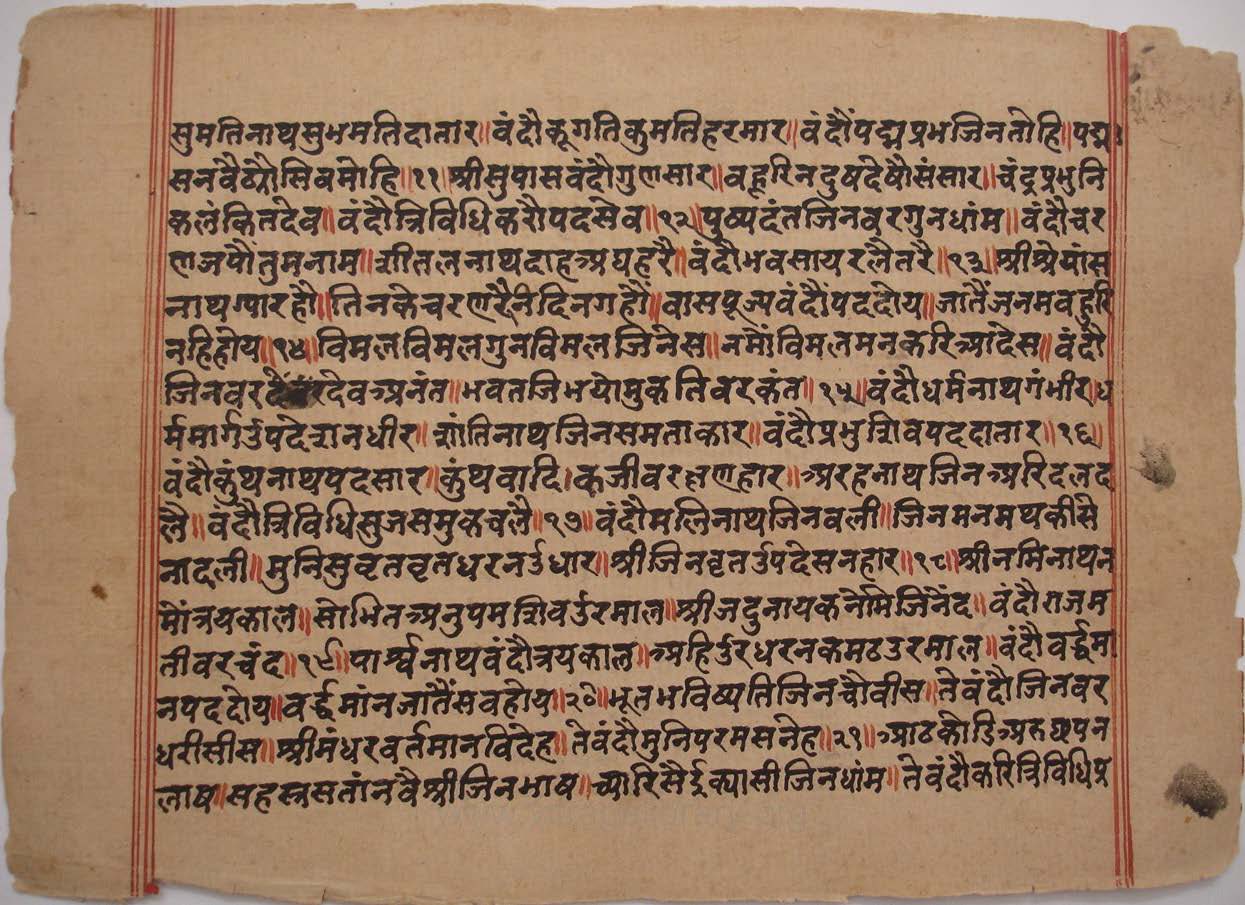 सुमतिनाथसुभमतिदातार॥वंदौकूगतिकुमतिहरमार॥वंदौंपद्मप्रभजिनतोहि॥पद्मा
सनवैठ्यौसिवमोहि॥११॥श्रीसुपासवंदौगुणसार॥वहूरिनदुषदेषौसंसार॥चंद्रप्रभुनि
कलंकितदेव॥वंदौत्रिविधिकरौपदसेव॥१२॥पुष्पदंतजिनवरगुनधांम॥वंदौचर
णजपौंतुमनाम॥शीतलनाथदाहअघहरै॥वंदौभवसायरलैतरै॥१३॥श्रीश्रेयांस
नाथ हौं॥तिनकेचरण दिनगहौं॥वासपूज्यवंदौंपददोय॥जातैंजनमवहुरि
नहिहोय॥१४॥विमलविमलगुनविमलजिनेस॥नमौंविमलमनकरिआदेस॥वंदौ
जिनवर देवअनंत॥भवतजिभयोमुकतिवरकंत॥१५॥वंदौधर्मनाथगंभीर॥ध
र्ममार्गउपदेशनधीर॥शांतिनाथजिनसमताकार॥वंदौप्रभुशिवपददातार॥१६॥
वंदौकुंथनाथपदसार॥कुंथवादिकजीवरक्षणहार॥अरहनाथजिनअरिदलद
लै॥वंदौत्रिविधिसुजसमुकचलै॥१७॥वंदौमलिनाथजिनवली॥जिनमनमथकीसे
नादली॥मुनिसुवृतवृतधरनउधार॥श्रीजिनवृतउपदेसनहार॥१८॥श्रीनमिनाथन
मोंत्रयकाल॥सोभितअनुपमशिवउरमाल॥श्रीजदुनायकनेमिजिनेंद॥वंदौराजम
तीवरचंद॥१९॥पार्श्वनाथवंदौत्रयकाल॥अहिउरधरनकमठउरमाल॥वंदौवर्द्धमा
नपददोय॥वर्द्धमांनजातैंसवहोय॥२०॥भूतभविष्यतिजिनचौवीस॥तेवंदौजिनवर
धरीसीस॥श्रीमंधरवर्तमानविदेह॥तेवंदौमुनिपरमसनेह॥२१॥आठकोडिअरुछपन
लाष॥सहस्रसतांनवैश्रीजिनभाष॥च्यारिसैईक्यासीजिनधांम॥तेवंदौकरित्रिविधिप्र